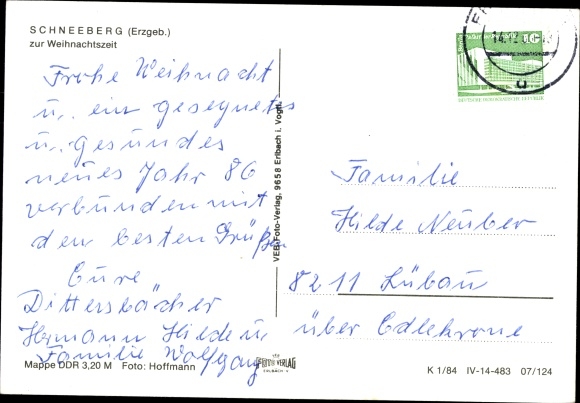 SCHNEEBERG (Erzgeb.)
zur Weihnachtszeit
Frohe Weihnacht
u. ein gesegnetes
u. gesundes
neues Jahr 86
verbunden mit
den besten Grüßen
Eure
Dittersbächer
Hermann Hilde u.
Familie Wolfgang
Mappe DDR 3,20 M Foto: Hoffmann
VEB Foto-Verlag, 9658 Erlbach i. Vogtl.
FOTO VERLAG
ERLBACH V
10
DEUTSCHE DEMOKRATISCHE REPUBLIK
u
Familie
Hilde Neuber
8211 Lübau
über Edlekrone
K 1/84 IV-14-483 07/124